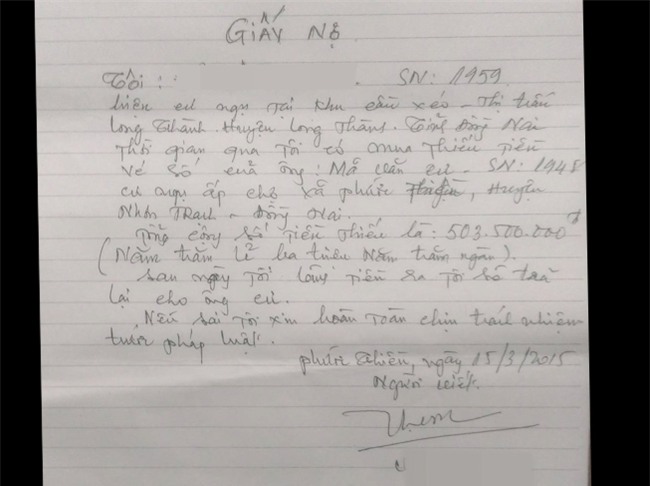 GIẤY NỢ
Tôi : SN: 1959
hiện cư ngụ tại khu cầu xéo - Thị trấn
Long Thành. Huyện Long Thành. Tỉnh Đồng Nai
Thời gian qua Tôi có mua Thiếu Tiền
vé số của ông: Mã Văn cư - SN: 1948
cư ngụ ấp chợ xã phước Thiền, Huyện
Nhơn Trạch - Đồng Nai.
Tổng cộng số Tiền Thiếu là: 503.500.000đ
(Năm trăm lẻ ba triệu Năm trăm ngàn).
sau ngày Tôi Tiền ra Tôi sẽ trả
lại cho ông cư.
Nếu sai Tôi xin hoàn Toàn chịu trách nhiệm
trước pháp luật.
phước Thiền, ngày 15/3/2015
Người viết.